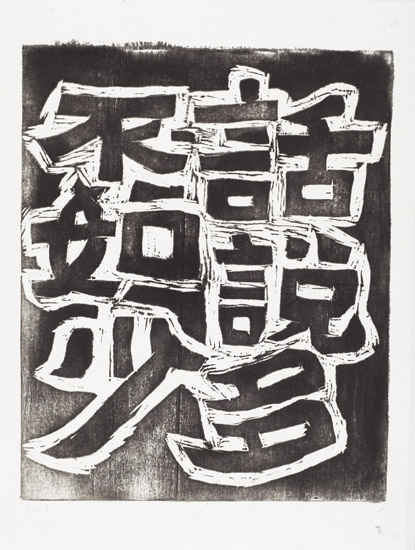 話說多
不如少